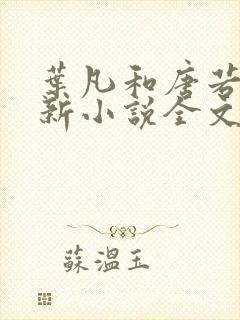 葉凡和唐若
新小說全文
蘇溫玉